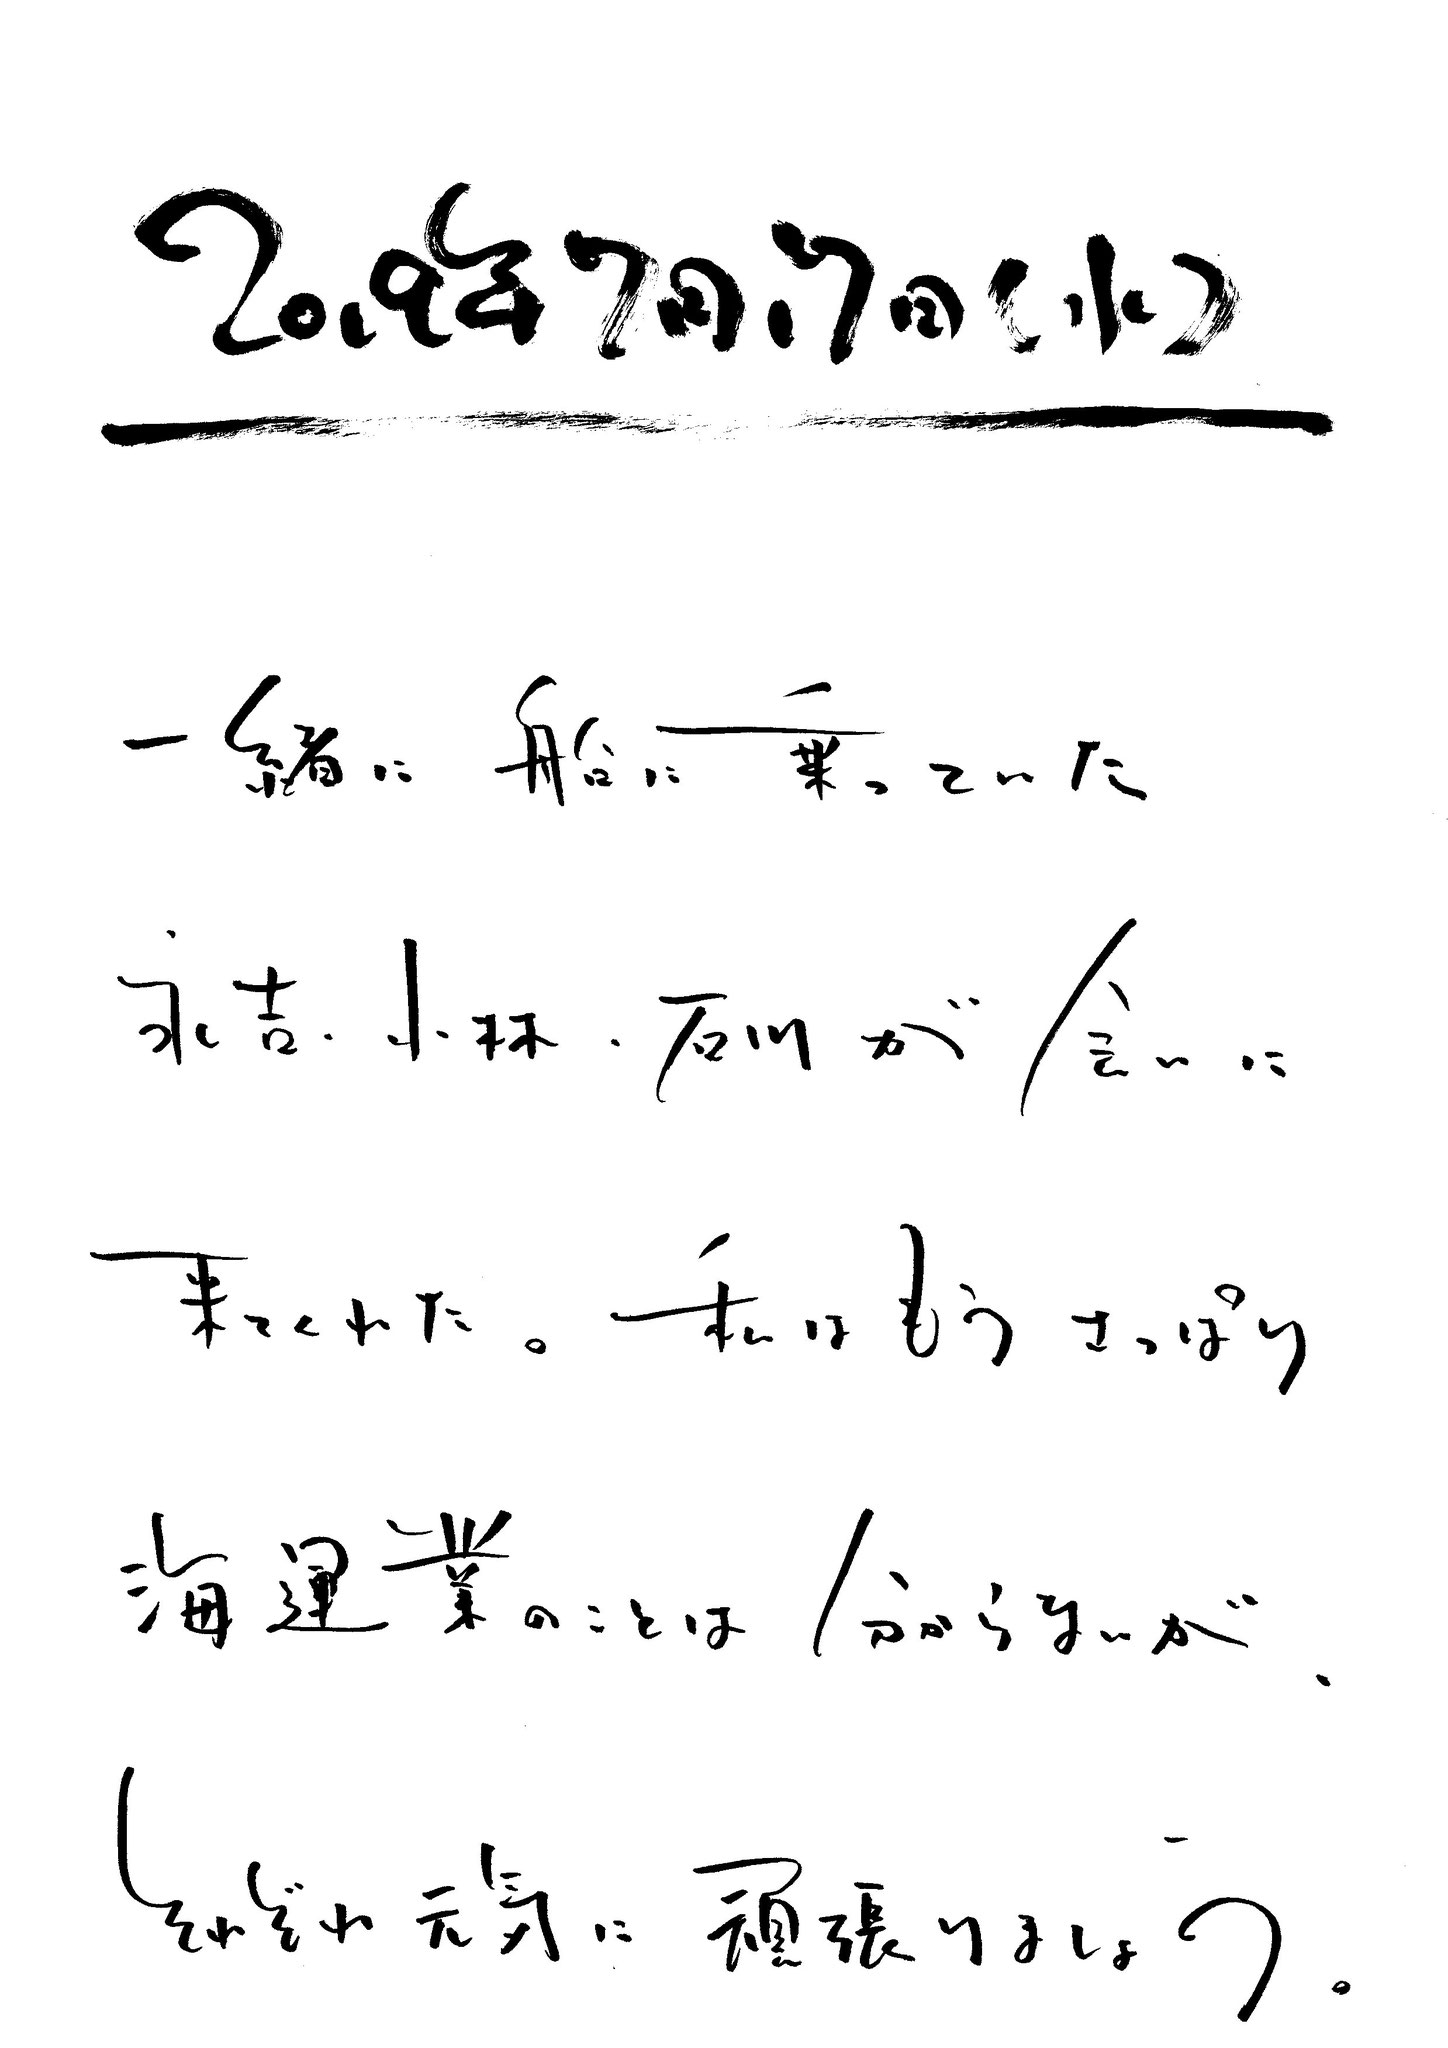 2019年7月17日(水)
一緒に船に乗っていた
永吉・小林・石川が会いに
来てくれた。私はもうさっぱり
海運業のことは分からないが、
それぞれ元気に頑張りましょう。